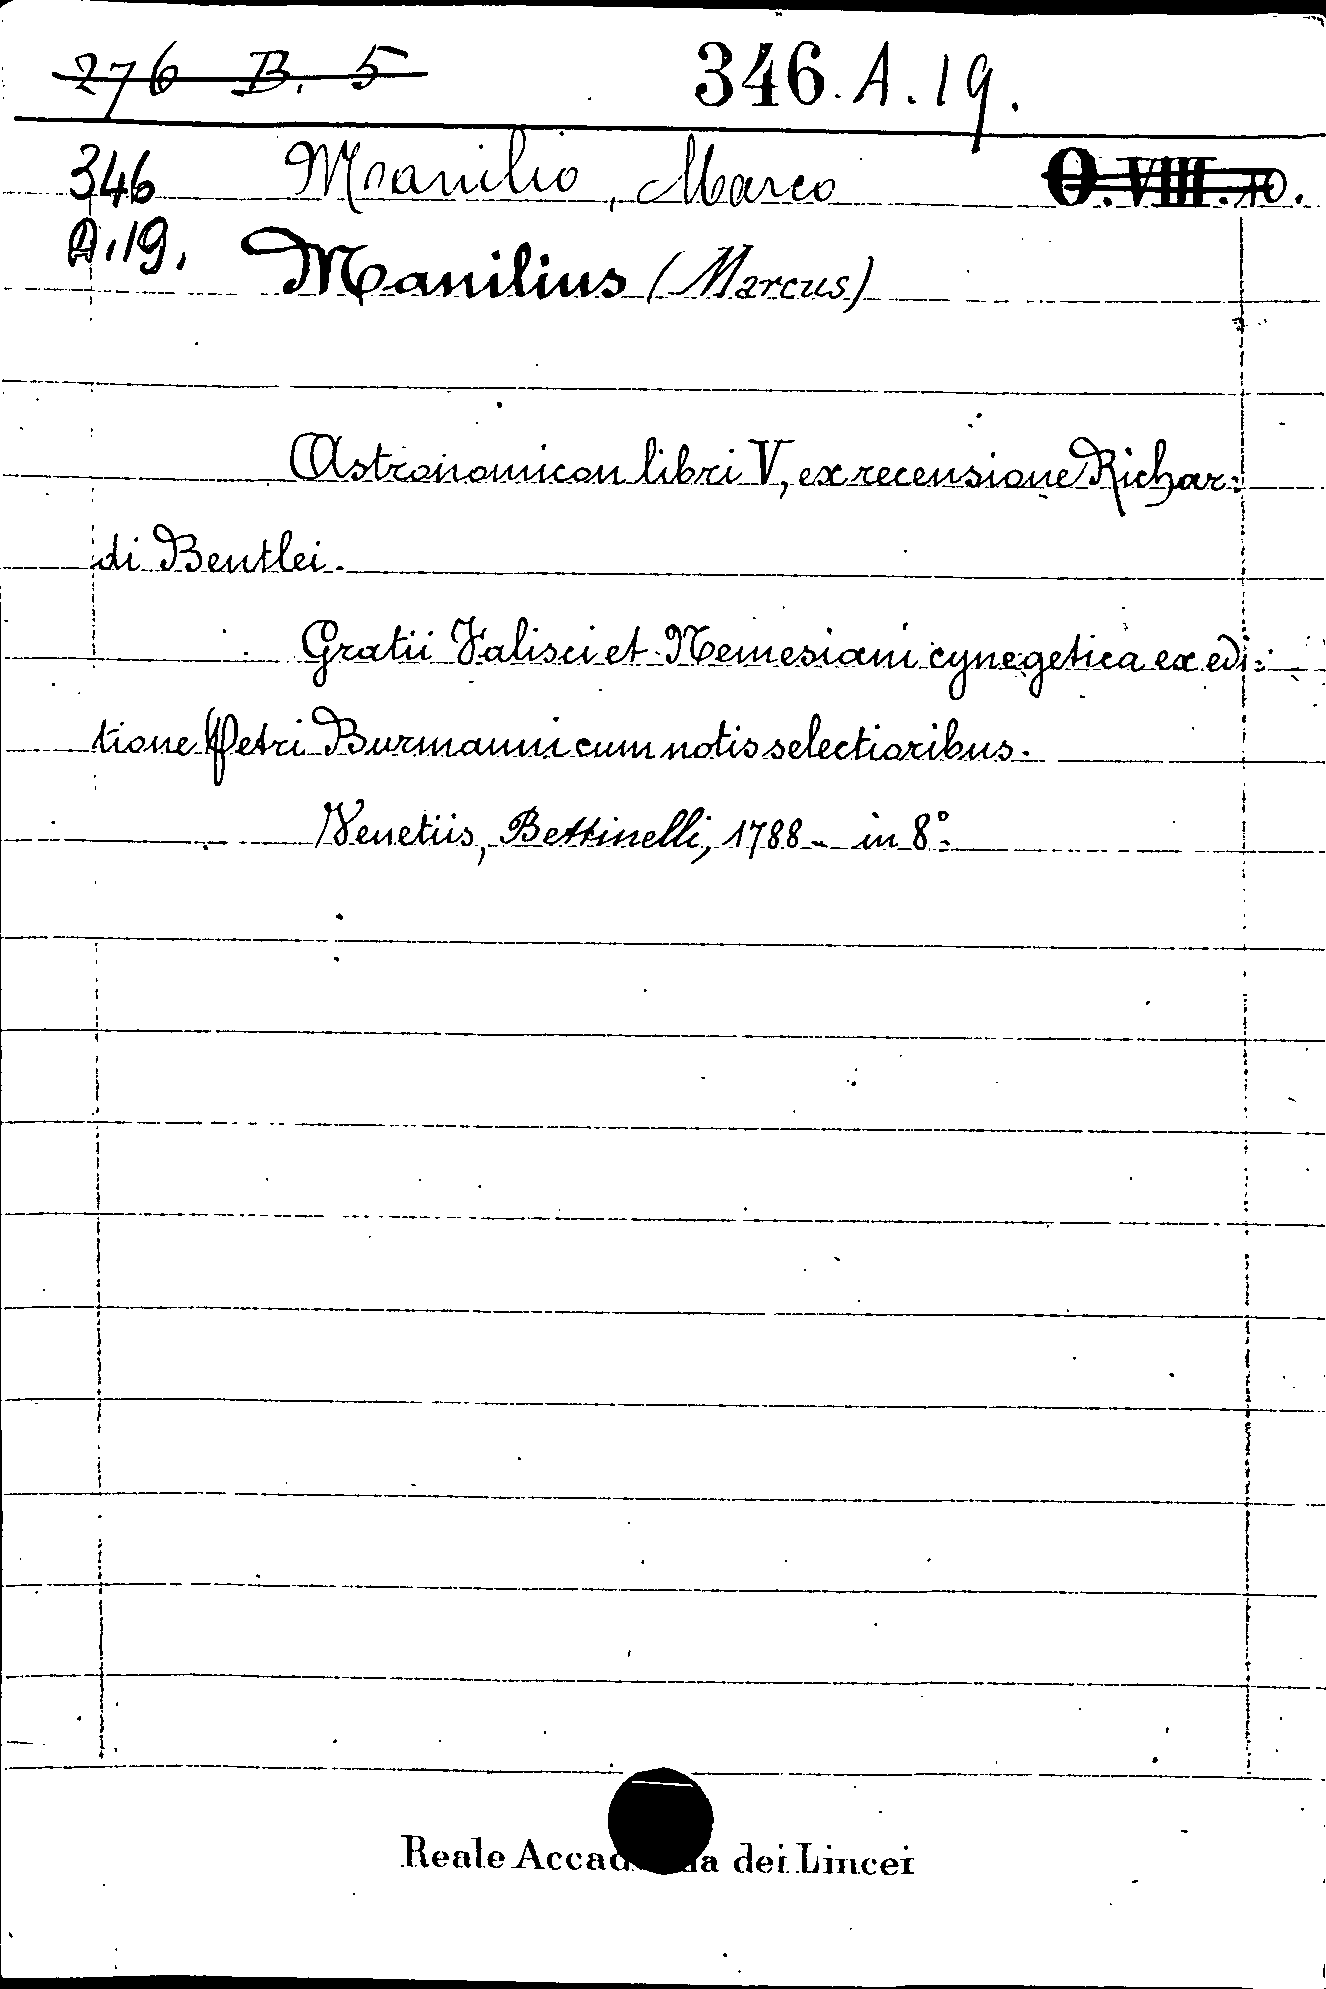 276 B. 5 346. A. 19.
346 Manilio, Marco O. VIII. 10.
A. 19. Manilius (Marcus)
Astronomicon libri V, ex recensione Richar=
di Bentlei.
Gratii Falisci et Nemesiani cynegetica ex edi=
tione Petri Burmanni cum notis selectioribus.
Venetiis, Bettinelli, 1788 - in 8°.
Reale Accad a dei Lincei